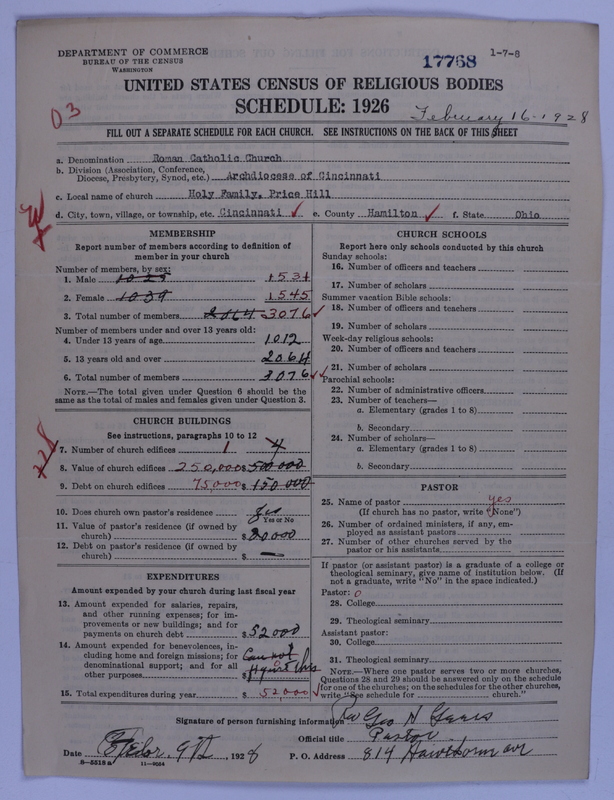 DEPARTMENT OF COMMERCE
BUREAU OF THE CENSUS
WASHINGTON
17768
1-7-8
UNITED STATES CENSUS OF RELIGIOUS BODIES
SCHEDULE: 1926
February 16-1928
03
FILL OUT A SEPARATE SCHEDULE FOR EACH CHURCH. SEE INSTRUCTIONS ON THE BACK OF THIS SHEET
a. Denomination Roman Catholic Church
b. Division (Association, Conference, Diocese, Presbytery, Synod, etc.) Archdiocese of Cincinnati
c. Local name of church Holy Family, Price Hill
d. City, town, village, or township, etc. Cincinnati e. County Hamilton f. State Ohio
MEMBERSHIP
Report number of members according to definition of member in your church
Number of members, by sex:
1. Male 1025 1531
2. Female 1039 1545
3. Total number of members 2064 3076
Number of members under and over 13 years old:
4. Under 13 years of age 1012
5. 13 years old and over 2064
6. Total number of members 3076
NOTE.—The total given under Question 6 should be the same as the total of males and females given under Question 3.
CHURCH BUILDINGS
See instructions, paragraphs 10 to 12
7. Number of church edifices 1 4
8. Value of church edifices 250,000 $ 500 000
9. Debt on church edifices 75000 $ 150 000
10. Does church own pastor's residence yes
Yes or No
11. Value of pastor's residence (if owned by church) $ 20000
12. Debt on pastor's residence (if owned by church) $ —
EXPENDITURES
Amount expended by your church during last fiscal year
13. Amount expended for salaries, repairs, and other running expenses; for improvements or new buildings; and for payments on church debt $ 52000
14. Amount expended for benevolences, including home and foreign missions; for denominational support; and for all other purposes Can not $ this
15. Total expenditures during year $ 52,000
CHURCH SCHOOLS
Report here only schools conducted by this church
Sunday schools:
16. Number of officers and teachers
17. Number of scholars
Summer vacation Bible schools:
18. Number of officers and teachers
19. Number of scholars
Week-day religious schools:
20. Number of officers and teachers
21. Number of scholars
Parochial schools:
22. Number of administrative officers
23. Number of teachers—
a. Elementary (grades 1 to 8)
b. Secondary
24. Number of scholars—
a. Elementary (grades 1 to 8)
b. Secondary
PASTOR
25. Name of pastor yes
(If church has no pastor, write "None")
26. Number of ordained ministers, if any, employed as assistant pastors
27. Number of other churches served by the pastor or his assistants
If pastor (or assistant pastor) is a graduate of a college or theological seminary, give name of institution below. (If not a graduate, write "No" in the space indicated.)
Pastor: 0
28. College
29. Theological seminary
Assistant pastor:
30. College
31. Theological seminary
NOTE.—Where one pastor serves two or more churches, Questions 28 and 29 should be answered only on the schedule for one of the churches; on the schedules for the other churches, write "See schedule for church."
Signature of person furnishing information Rev Geo H
Official title Pastor
Date , 1928 P. O. Address 814 Hawthorn ave
8-5518a 11-9054